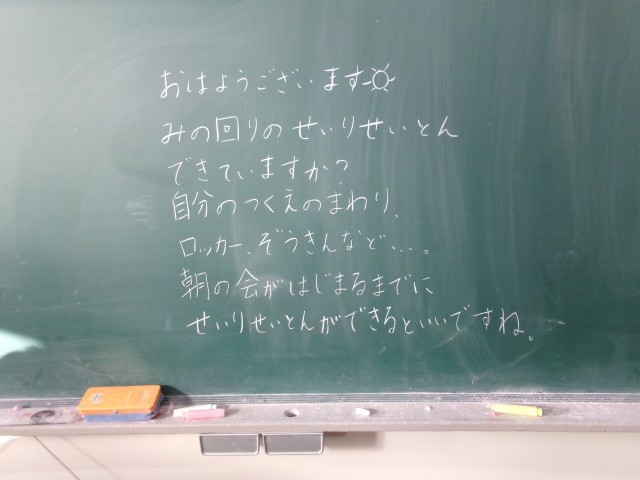 おはようございます☀
みの回りのせいりせいとん
できていますか?
自分のつくえのまわり、
ロッカー、ぞうきんなど...。
朝の会がはじまるまでに
せいりせいとんができるといいですね。